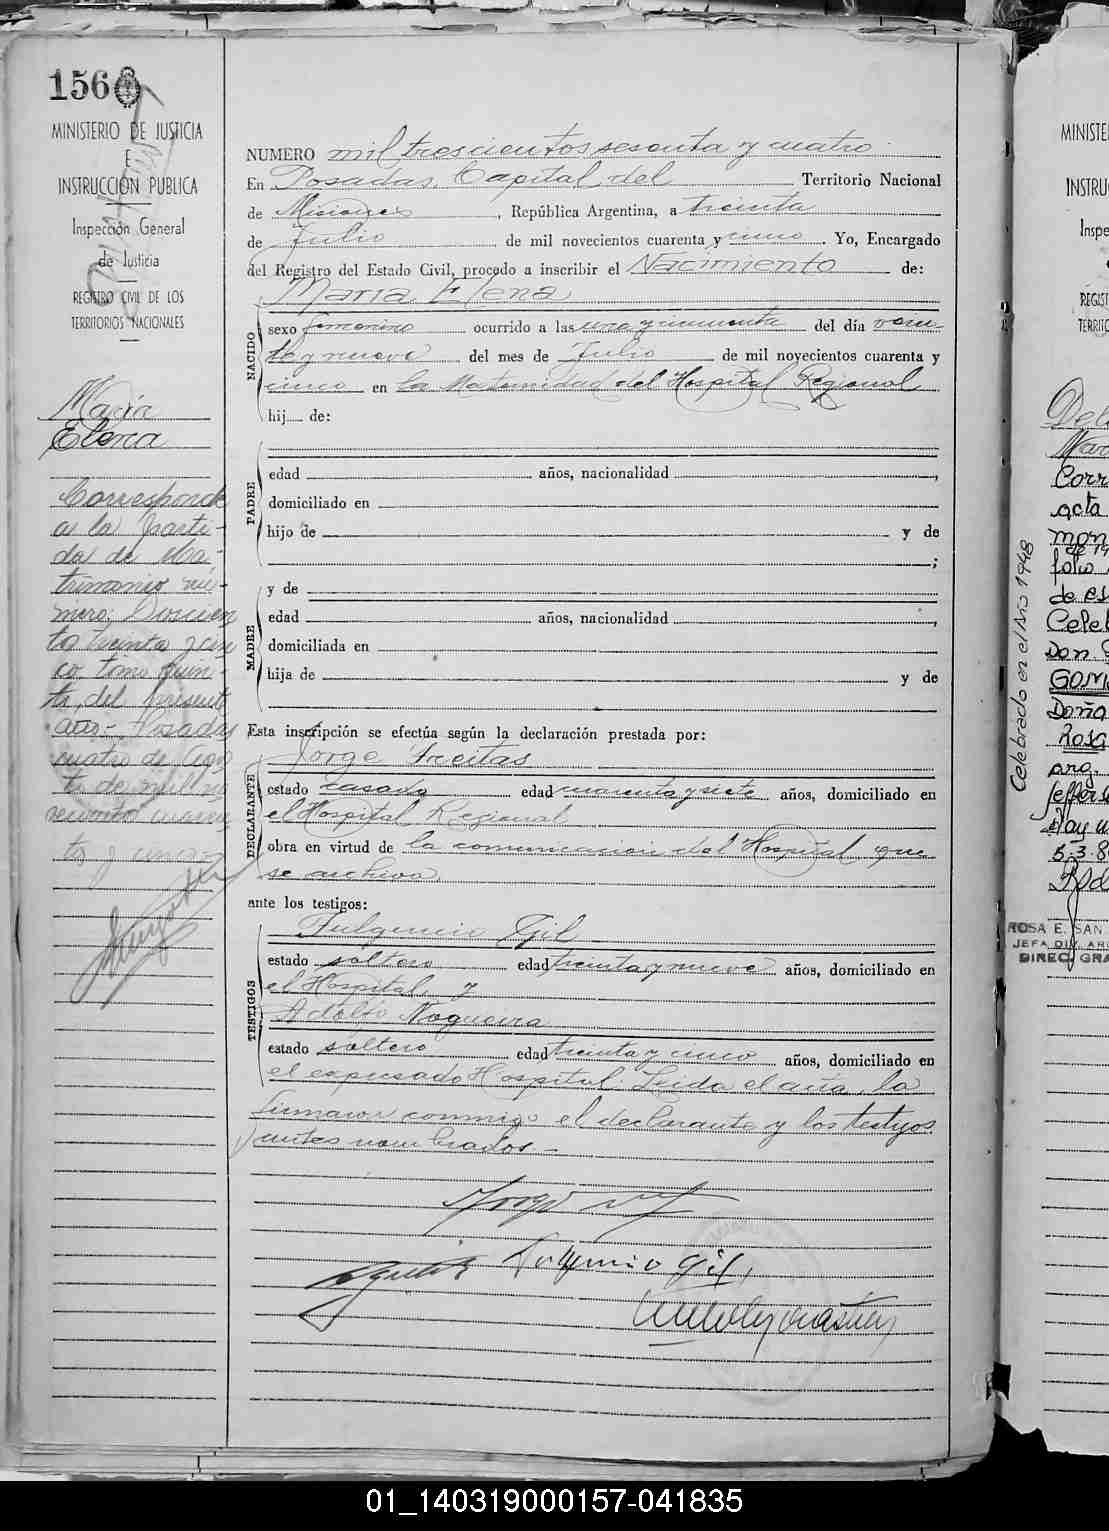 156
MINISTERIO DE JUSTICIA
E
INSTRUCCIÓN PUBLICA
Inspección General
de Justicia
REGISTRO CIVIL DE LOS
TERRITORIOS NACIONALES
María
Elena
Corresponde
a la parti-
da de Ma-
trimonio nú-
mero: Doscien
to treinta y cin
co, tomo quin-
to, del presente
año.- Posadas
cuatro de Agos
to de mil no
vecientos cuaren
ta y cinco
NUMERO mil trescientos sesenta y cuatro
En Posadas, Capital del Territorio Nacional
de Misiones, República Argentina, a treinta
de Julio de mil novecientos cuarenta y cinco. Yo, Encargado
del Registro del Estado Civil, procedo a inscribir el Nacimiento de:
María Elena
NACIDO
sexo femenino ocurrido a las una y cincuenta del día vein-
te y nueve del mes de Julio de mil novecientos cuarenta y
cinco en la Maternidad del Hospital Regional
hij de:
PADRE
edad años, nacionalidad ,
domiciliado en
hijo de y de
;
y de
MADRE
edad años, nacionalidad ,
domiciliada en
hija de y de
Esta inscripción se efectúa según la declaración prestada por:
Jorge Freitas
DECLARANTE
estado casado edad cuarenta y siete años, domiciliado en
el Hospital Regional
obra en virtud de la comunicación del Hospital que
se archiva
ante los testigos:
Fulgencio Gil
TESTIGOS
estado soltero edad treinta y nueve años, domiciliado en
el Hospital y
Adolfo Nogueira
estado soltero edad treinta y cinco años, domiciliado en
el expresado Hospital. Leida el acta, la
firmaron conmigo el declarante y los testigos
antes nombrados.-
Fulgencio Gil
Celebrado en el Año 1948
MINISTE
INSTRU
Inspe
REGIST
TERRITO
Corr
acta
mon
folio
de es
Celeb
Don
GOM
Doña
Rosa
arg.
5.3.8
ROSA E. SAN
JEFA DIV. AR
DIREC. GRA
01_140319000157-041835